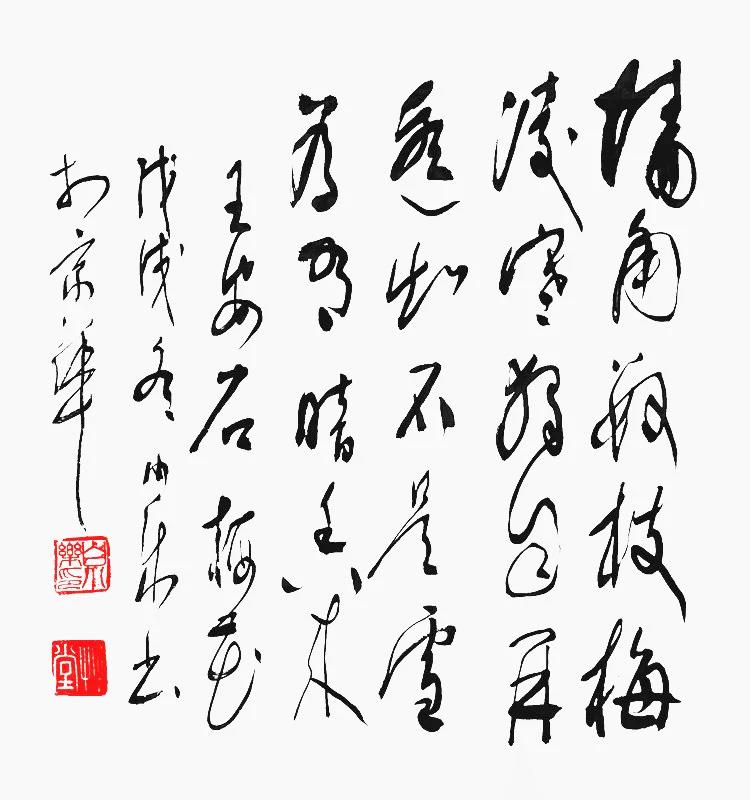 墙角数枝梅
凌寒独自开
遥知不是雪
为有暗香来
王安石梅花
戊戌冬乐书
于京华
京樂印
堂